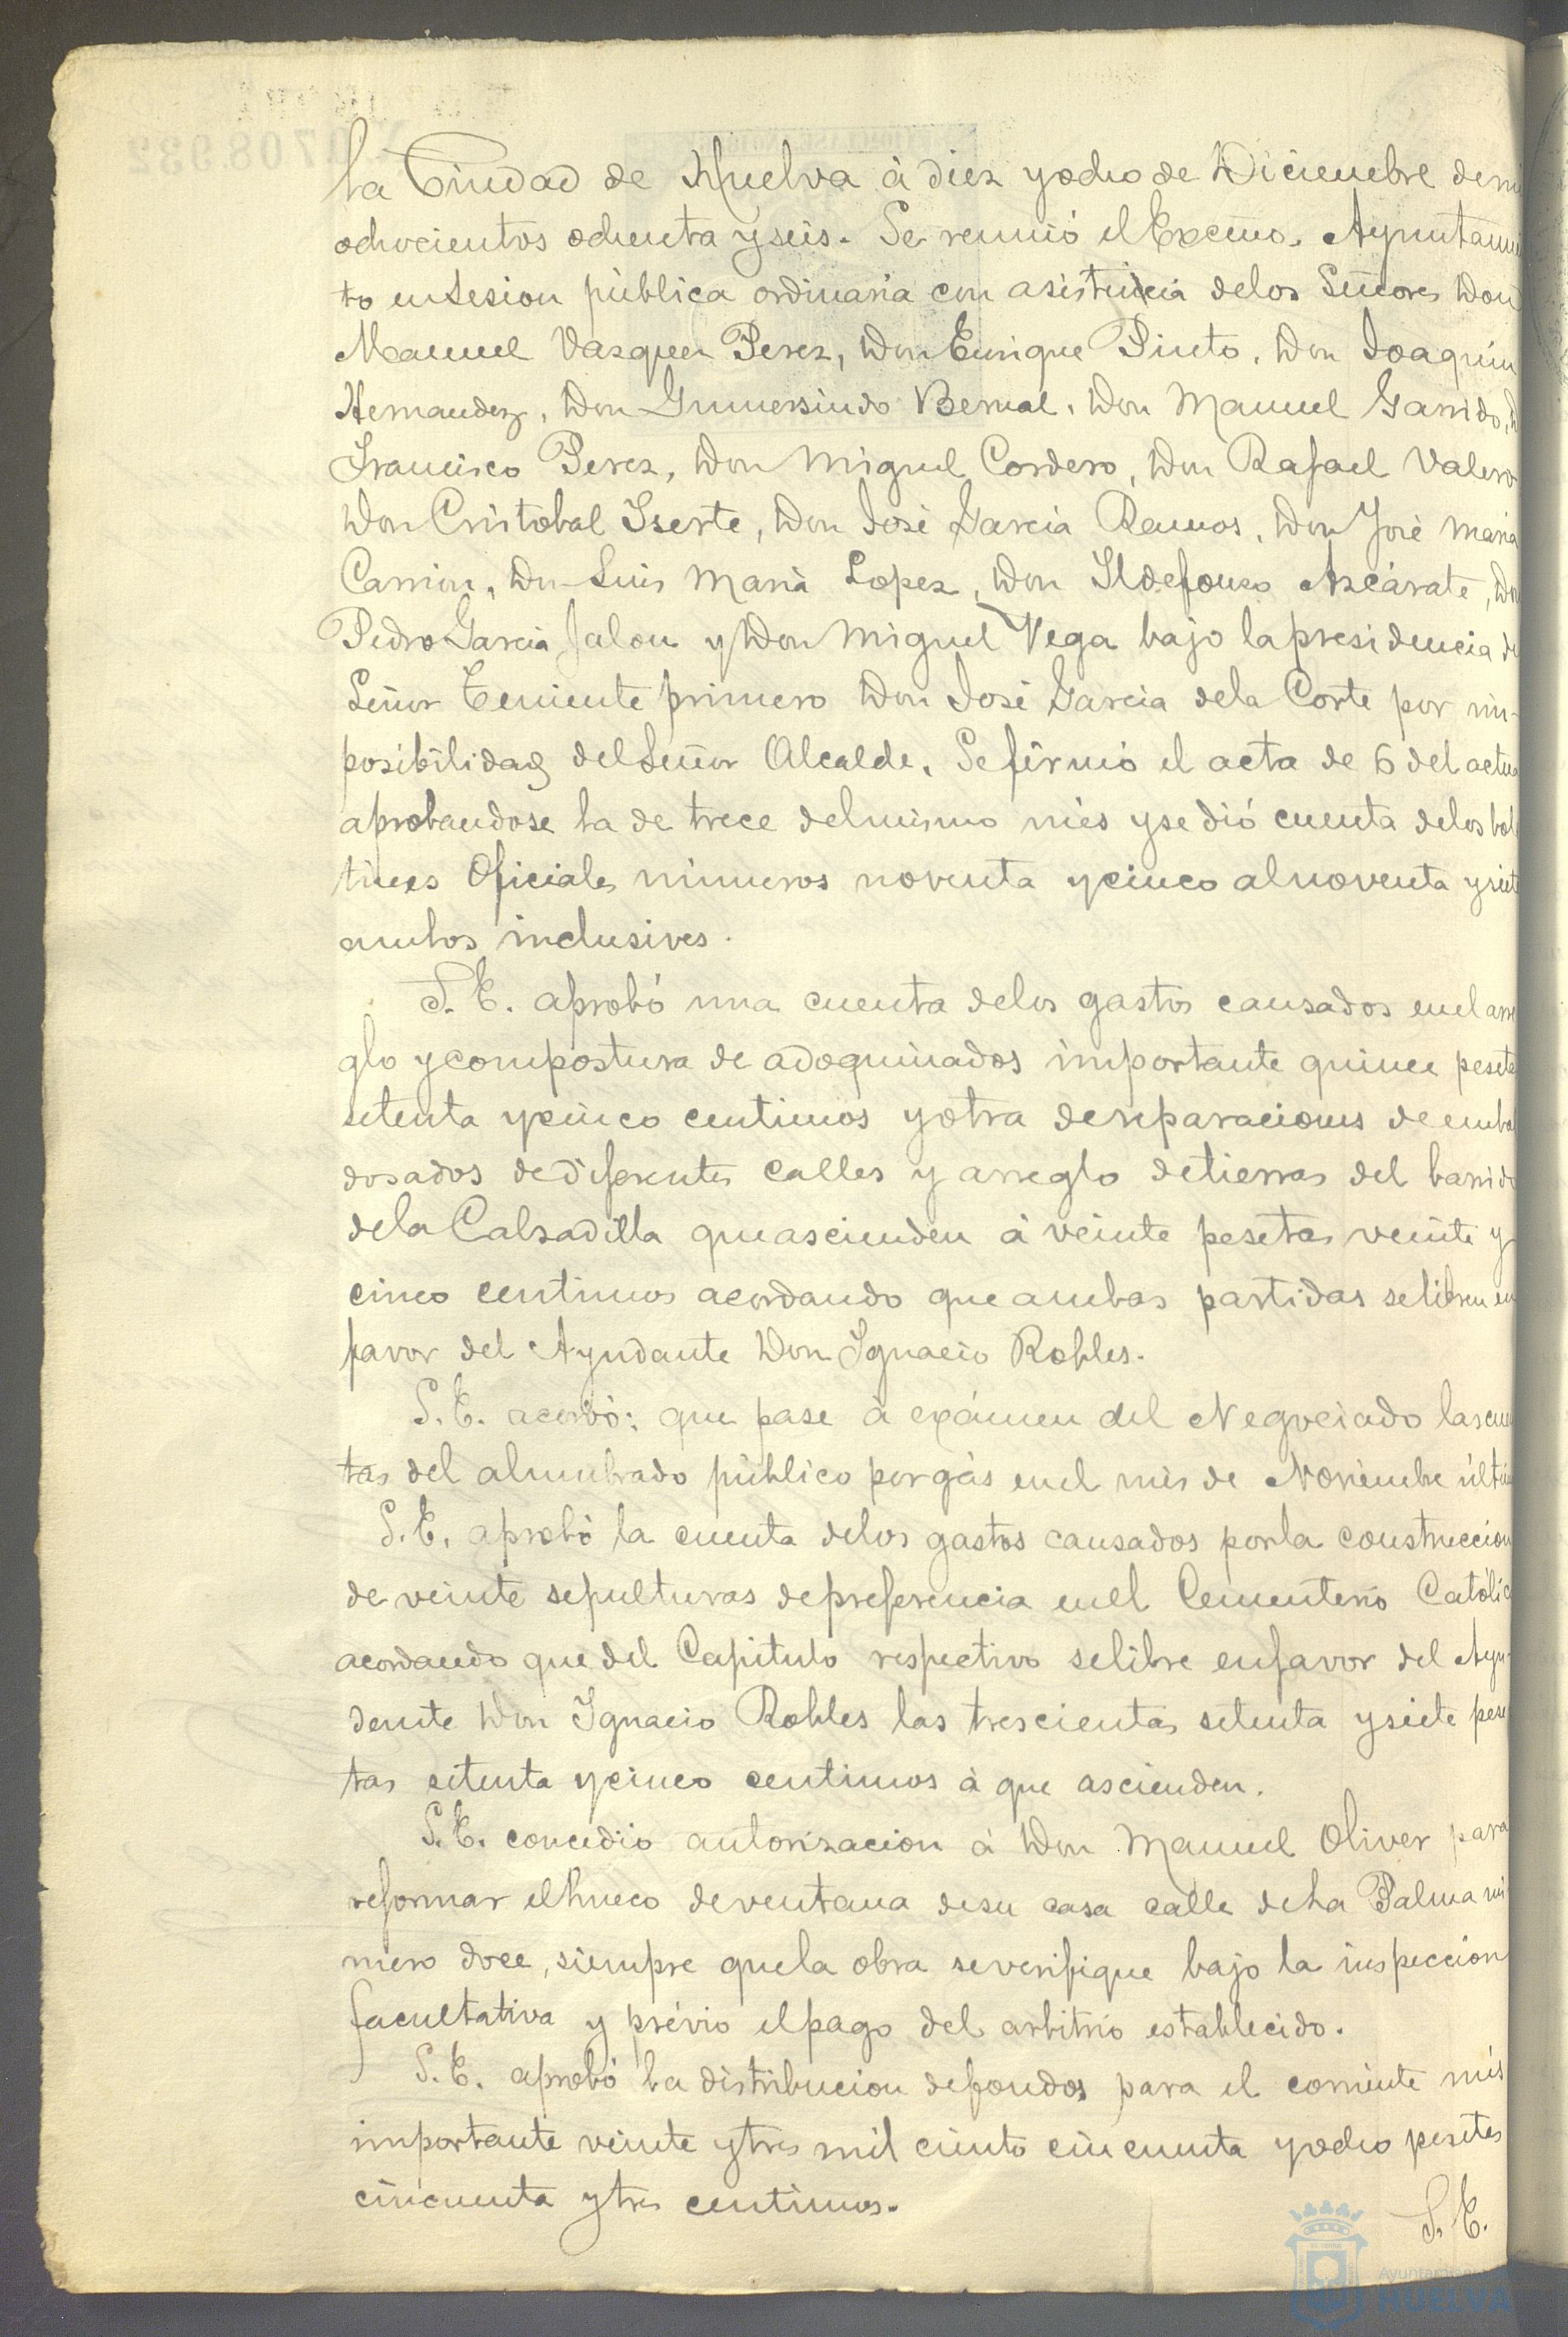 La Ciudad de Huelva á diez y ocho de Diciembre de mi
ochocientos ochenta y seis. Se reunió el Excmo. Ayuntami
to en Sesion pública ordinaria con asistencia de los Señores Don
Manuel Vazquez Perez, Don Enrique Pinto, Don Joaquin
Hernandez, Don Gumersindo Bernal, Don Manuel Garrido, D
Francisco Perez, Don Miguel Cordero, Don Rafael Valero
Don Cristobal Iserte, Don José Garcia Ramos, Don José Maria
Carrion, Don Luis Maria Lopez, Don Ildefonso Azcárate, Don
Pedro Garcia Jalon y Don Miguel Vega bajo la presidencia de
Señor Teniente primero Don José Garcia de la Corte por im-
posibilidad del Señor Alcalde. Se firmó el acta de 6 del actua
aprobandose la de trece del mismo més y se dió cuenta de los bol
tines Oficiales números noventa y cinco al noventa y siet
ambos inclusives.
S. E. aprobó una cuenta de los gastos causados en el arre
glo y compostura de adoquinados importante quince peseta
setenta y cinco centimos y otra de reparaciones de embal
dosados de diferentes calles y arreglo de tierras del barrido
de la Calzadilla que ascienden á veinte pesetas veinte y
cinco centimos acordando que ambas partidas se libren en
favor del Ayudante Don Ignacio Robles.
S. E. acordó: que pase á exámen del Negociado las cuen
tas del alumbrado público por gás en el més de Noviembre últim
S. E. aprobó la cuenta de los gastos causados por la construccion
de veinte sepulturas de preferencia en el Cementerio Católic
acordando que del Capitulo respectivo se libre en favor del Ayu-
dente Don Ignacio Robles las trescientas setenta y siete pese
tas setenta y cinco centimos á que ascienden.
S. E. concedió autorizacion á Don Manuel Oliver para
reformar el hueco de ventana de su casa calle de La Palma nú
mero doce, siempre que la obra se verifique bajo la inspeccion
facultativa y prévio el pago del arbitrio establecido.
S. E. aprobó la distribucion de fondos para el corriente més
importante veinte y tres mil ciento cincuenta y ocho pesetas
cincuenta y tres centimos.
S. E.
Ayuntamiento
HUELVA
0708932